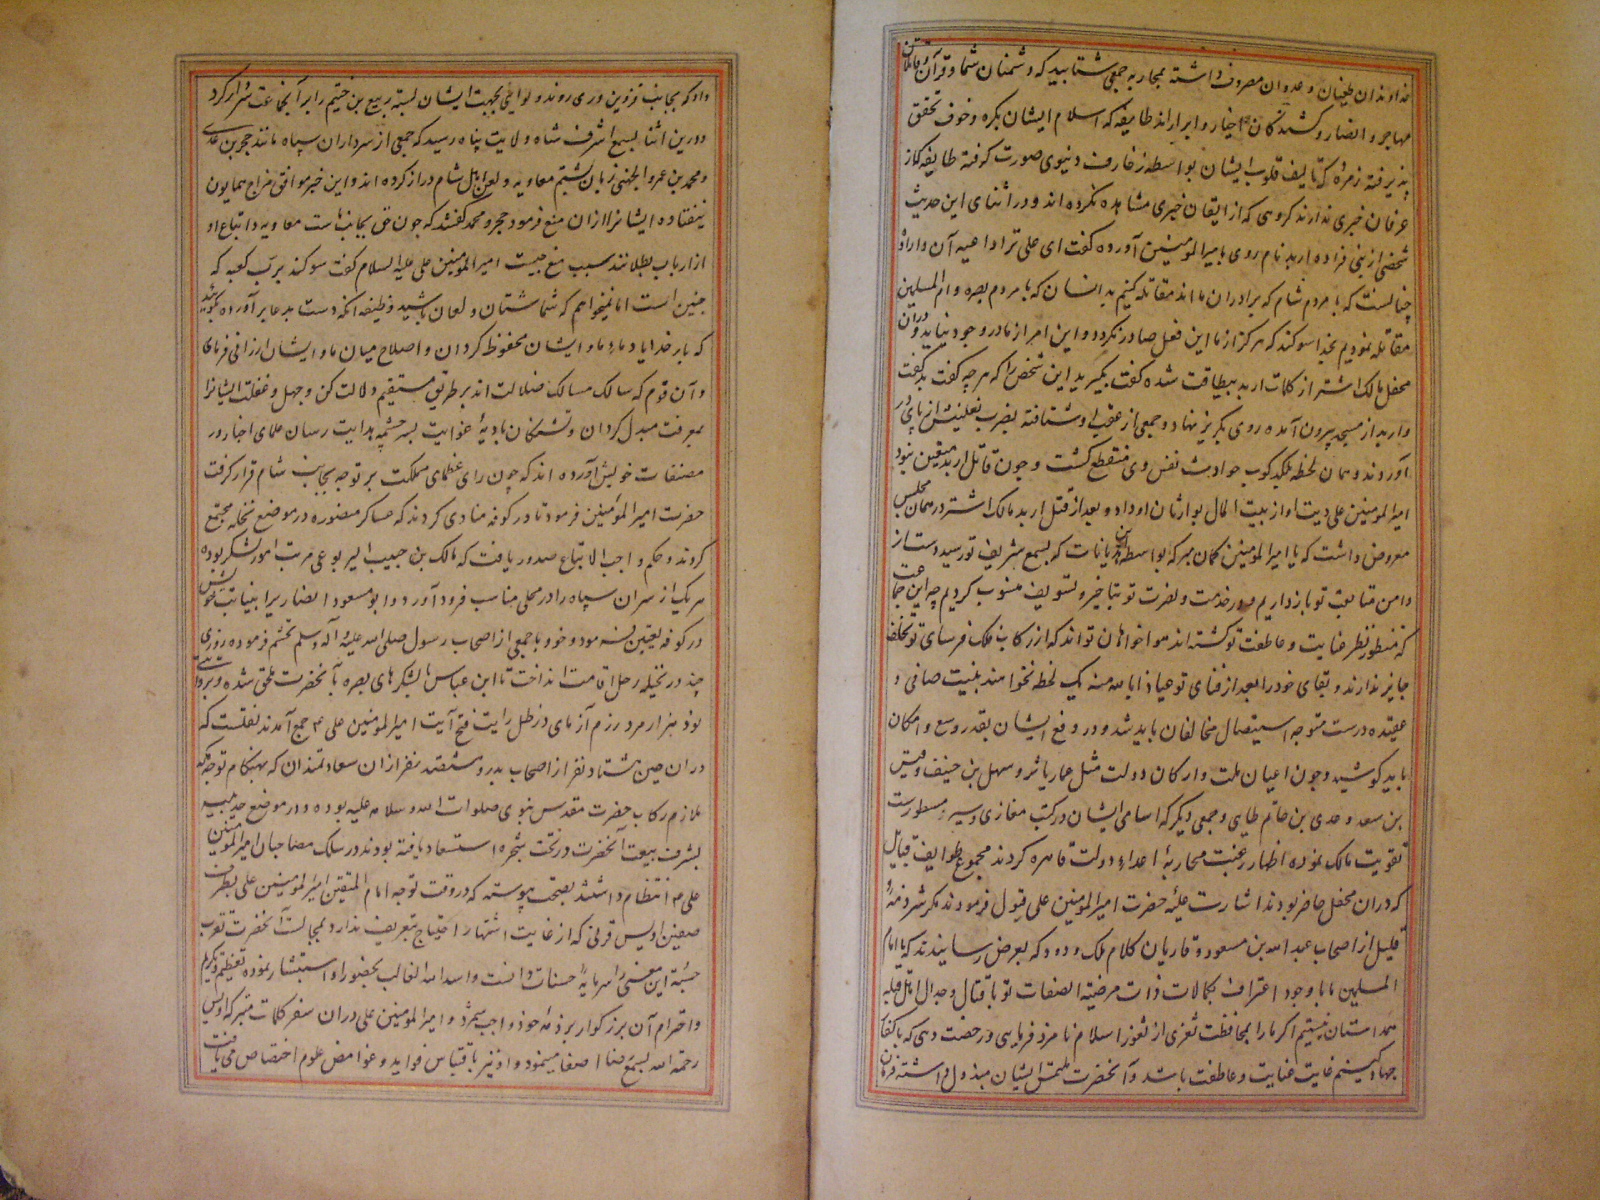 خداوندان طغیان و عدوان مصروف داشته بمحاربه جمعی شتابید که دشمنان شما و قرآن و قاتلان
مهاجر و انصار و کشندکان اخیار و ابرارند طایفه که اسلام ایشان بکره و خوف تحقق
پذیرفته زمرهٔ که تالیف قلوب ایشان بواسطه زخارف دنیوی صورت کرفته طایفه که از
عرفان خبری ندارند کروهی که از ایقان خیری مشاهده نکرده اند و در اثنای این حدیث
شخصی از بنی فزاره اربد نام روی بامیرالمومنین آورده کفت ای علی ترا داعیه آن
چنانست که با مردم شام که برادران ما اند مقاتله کنیم بدانسان که با مردم بصره و ام المسلمین
مقاتله نمودیم بخدا سوکند که هرکز از ما این فعل صادر نکردد و این امر از ما در وجود نیاید و دران
محفل مالک اشتر از کلمات اربد بیطاقت شده کفت بکیرید این شخص را که هرچه کفت بد کفت
و اربد از مسجد بیرون آمده روی بکریز نهاد و جمعی از عقب او شتافته بضرب نعلینش از پای در
آوردند و همان لحظه بلکدکوب حوادث نفس وی منقطع کشت و چون قاتل اربد متعین نبود
امیرالمومنین علی دیت او از بیت المال بوارثان او داد و بعد از قتل اربد مالک اشتر در همان مجلس
معروض داشت که یا امیرالمومنین کمان مبر که بواسطه این هذیانات که بسمع شریف تو رسید دست از
دامن متابعت تو بازداریم و در خدمت و نصرت تو بتاخیر و تسویف منسوب کردیم چه این جماعت
که منظور نظر عنایت و عاطفت تو کشته اند هواخواهان تواند که از رکاب فلک فرسای تو تخلف
جایز ندارند و بقای خود را بعد از فنای تو عیاذا بالله منه یک لحظه نخواهند بنیت صافی و
عقیده درست متوجه استیصال مخالفان باید شد و در دفع ایشان بقدر وسع و امکان
باید کوشید و چون اعیان ملت و ارکان دولت مثل عمار یاسر و سهل بن حنیف و قیس
بن سعد و عدی بن حاتم طایی و جمعی دیکر که اسامی ایشان در کتب مغازی و سیر مسطورست
تقویت مالک نموده اظهار رغبت محاربهٔ اعداء دولت قاهره کردند مجموع طوایف قبایل
که دران محفل حاضر بودند اشارت علیهٔ حضرت امیرالمومنین علی قبول فرمودند مکر شرذمهٔ
قلیل از اصحاب عبد الله بن مسعود و قاریان کلام ملک ودود که بعرض رسانیدند که یا امام
المسلمین ما با وجود اعتراف بکمالات ذات مرضیة الصفات تو با قتال و جدال اهل قبله
همداستان نیستیم اکر ما را بمحافظت ثغری از ثغور اسلام نامزد فرمایی و رخصت دهی که با کفار
جهاد کنیم غایت عنایت و عاطفت باشد و آنحضرت ملتمس ایشان مبذول داشته فرمان
داد که بجانب قزوین و ری روند و لوائی بجهت ایشان بسته ربیع بن خثیم را بر آنجماعت سردار کرد
و درین اثنا بسمع اشرف شاه ولایت پناه رسید که جمعی از سرداران سپاه مانند حجر بن عدی
و محمد بن عمرو الجهنی زبان بشتم معاویه و لعن اهل شام دراز کرده اند و این خبر موافق مزاج همایون
نیفتاده ایشانرا ازان منع فرمود حجر و محمد کفتند که چون حق بجانب ماست معاویه و اتباع او
از ارباب بطلانند سبب منع چیست امیرالمومنین علی علیه السلام کفت سوکند برب کعبه که
چنین است اما نمیخواهم که شما شتان و لعان باشید وظیفه آنکه دست بدعا برآورده بکویید
که بار خدایا دماء ما و ایشان محفوظ کردان و اصلاح میان ما و ایشان ارزانی فرمای
و آن قوم که سالک مسالک ضلالت اند بر طریق مستقیم دلالت کن و جهل و غفلت ایشانرا
بمعرفت مبدل کردان و تشنکان بادیهٔ غوایت بسرچشمه هدایت رسان علمای اخبار در
مصنفات خویش آورده اند که چون رای عظمای مملکت بر توجه بجانب شام قرار کرفت
حضرت امیرالمؤمنین فرمود تا در کوفه منادی کردند که عساکر منصوره در موضع نخیله مجتمع
کردند و حکم واجب الاتباع صدور یافت که مالک بن حبیب الیربوعی مرتب امور لشکر بوده
هر یک از سران سپاه را در محلی مناسب فرود آورد و ابو مسعود انصاریرا بنیابت خویش
در کوفه تعیین نموده و خود با جمعی از اصحاب رسول صلی الله علیه و آله وسلم تجشم فرموده روزی
چند در نخیله رحل اقامت انداخت تا ابن عباس با لشکرهای بصره بآنحضرت ملحق شده و بروایتی
نود هزار مرد رزم آزمای در ظل رایت فتح آیت امیرالمومنین علی جمع آمدند نقلست که
دران حین هشتاد نفر از اصحاب بدر و هشتصد نفر ازان سعادتمندان که بهنکام توجه
ملازم رکاب حضرت مقدس نبوی صلوات الله و سلامه علیه بوده و در موضع حدیبیه
بشرف بیعت آنحضرت در تحت شجره استسعاد یافته بودند در سلک مصاحبان امیرالمومنین
علی انتظام داشتند بصحت پیوسته که در وقت توجه امام المتقین امیرالمومنین علی بطرف
صفین اویس قرنی که از غایت اشتهار احتیاج بتعریف ندارد بمجالست آنحضرت تقرب
جسته این معنی را سرمایهٔ حسنات دانست و اسد الله الغالب بحضور او استبشار نموده تعظیم و تکریم
و احترام آن بزرکوار بر ذمهٔ خود واجب شمرد و امیرالمومنین علی دران سفر کلمات متبرکه اویس
رحمة الله بسمع رضا اصغا مینمود و او نیز باقتباس فواید و غوامض علوم اختصاص می یافت